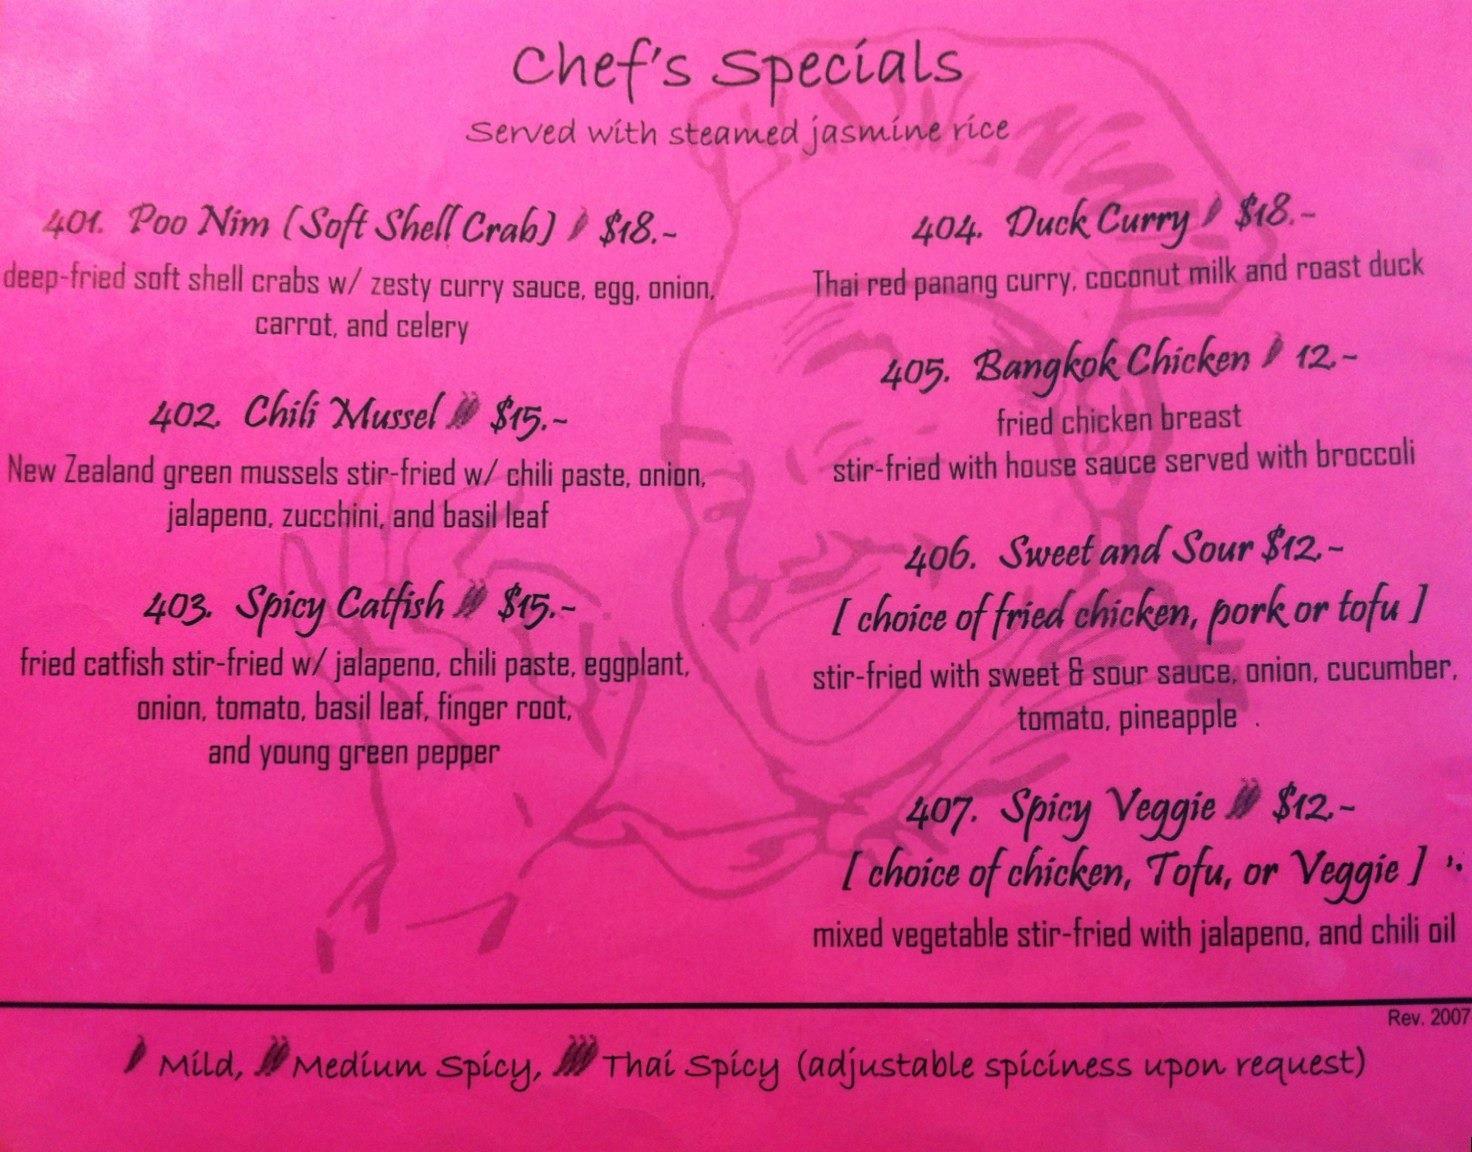 Chef's Specials
Served with steamed jasmine rice
401. Poo Nim (Soft Shell Crab) $18.-
deep-fried soft shell crabs w/ zesty curry sauce, egg, onion,
carrot, and celery
402. Chili Mussel $15.-
New Zealand green mussels stir-fried w/ chili paste, onion,
jalapeno, zucchini, and basil leaf
403. Spicy Catfish $15.-
fried catfish stir-fried w/ jalapeno, chili paste, eggplant,
onion, tomato, basil leaf, finger root,
and young green pepper
404. Duck Curry $18.-
Thai red panang curry, coconut milk and roast duck
405. Bangkok Chicken 12.-
fried chicken breast
stir-fried with house sauce served with broccoli
406. Sweet and Sour $12.-
[ choice of fried chicken, pork or tofu ]
stir-fried with sweet & sour sauce, onion, cucumber,
tomato, pineapple .
407. Spicy Veggie $12.-
[ choice of chicken, Tofu, or Veggie ]
mixed vegetable stir-fried with jalapeno, and chili oil
Rev. 2007
Mild, Medium Spicy, Thai Spicy (adjustable spiciness upon request)